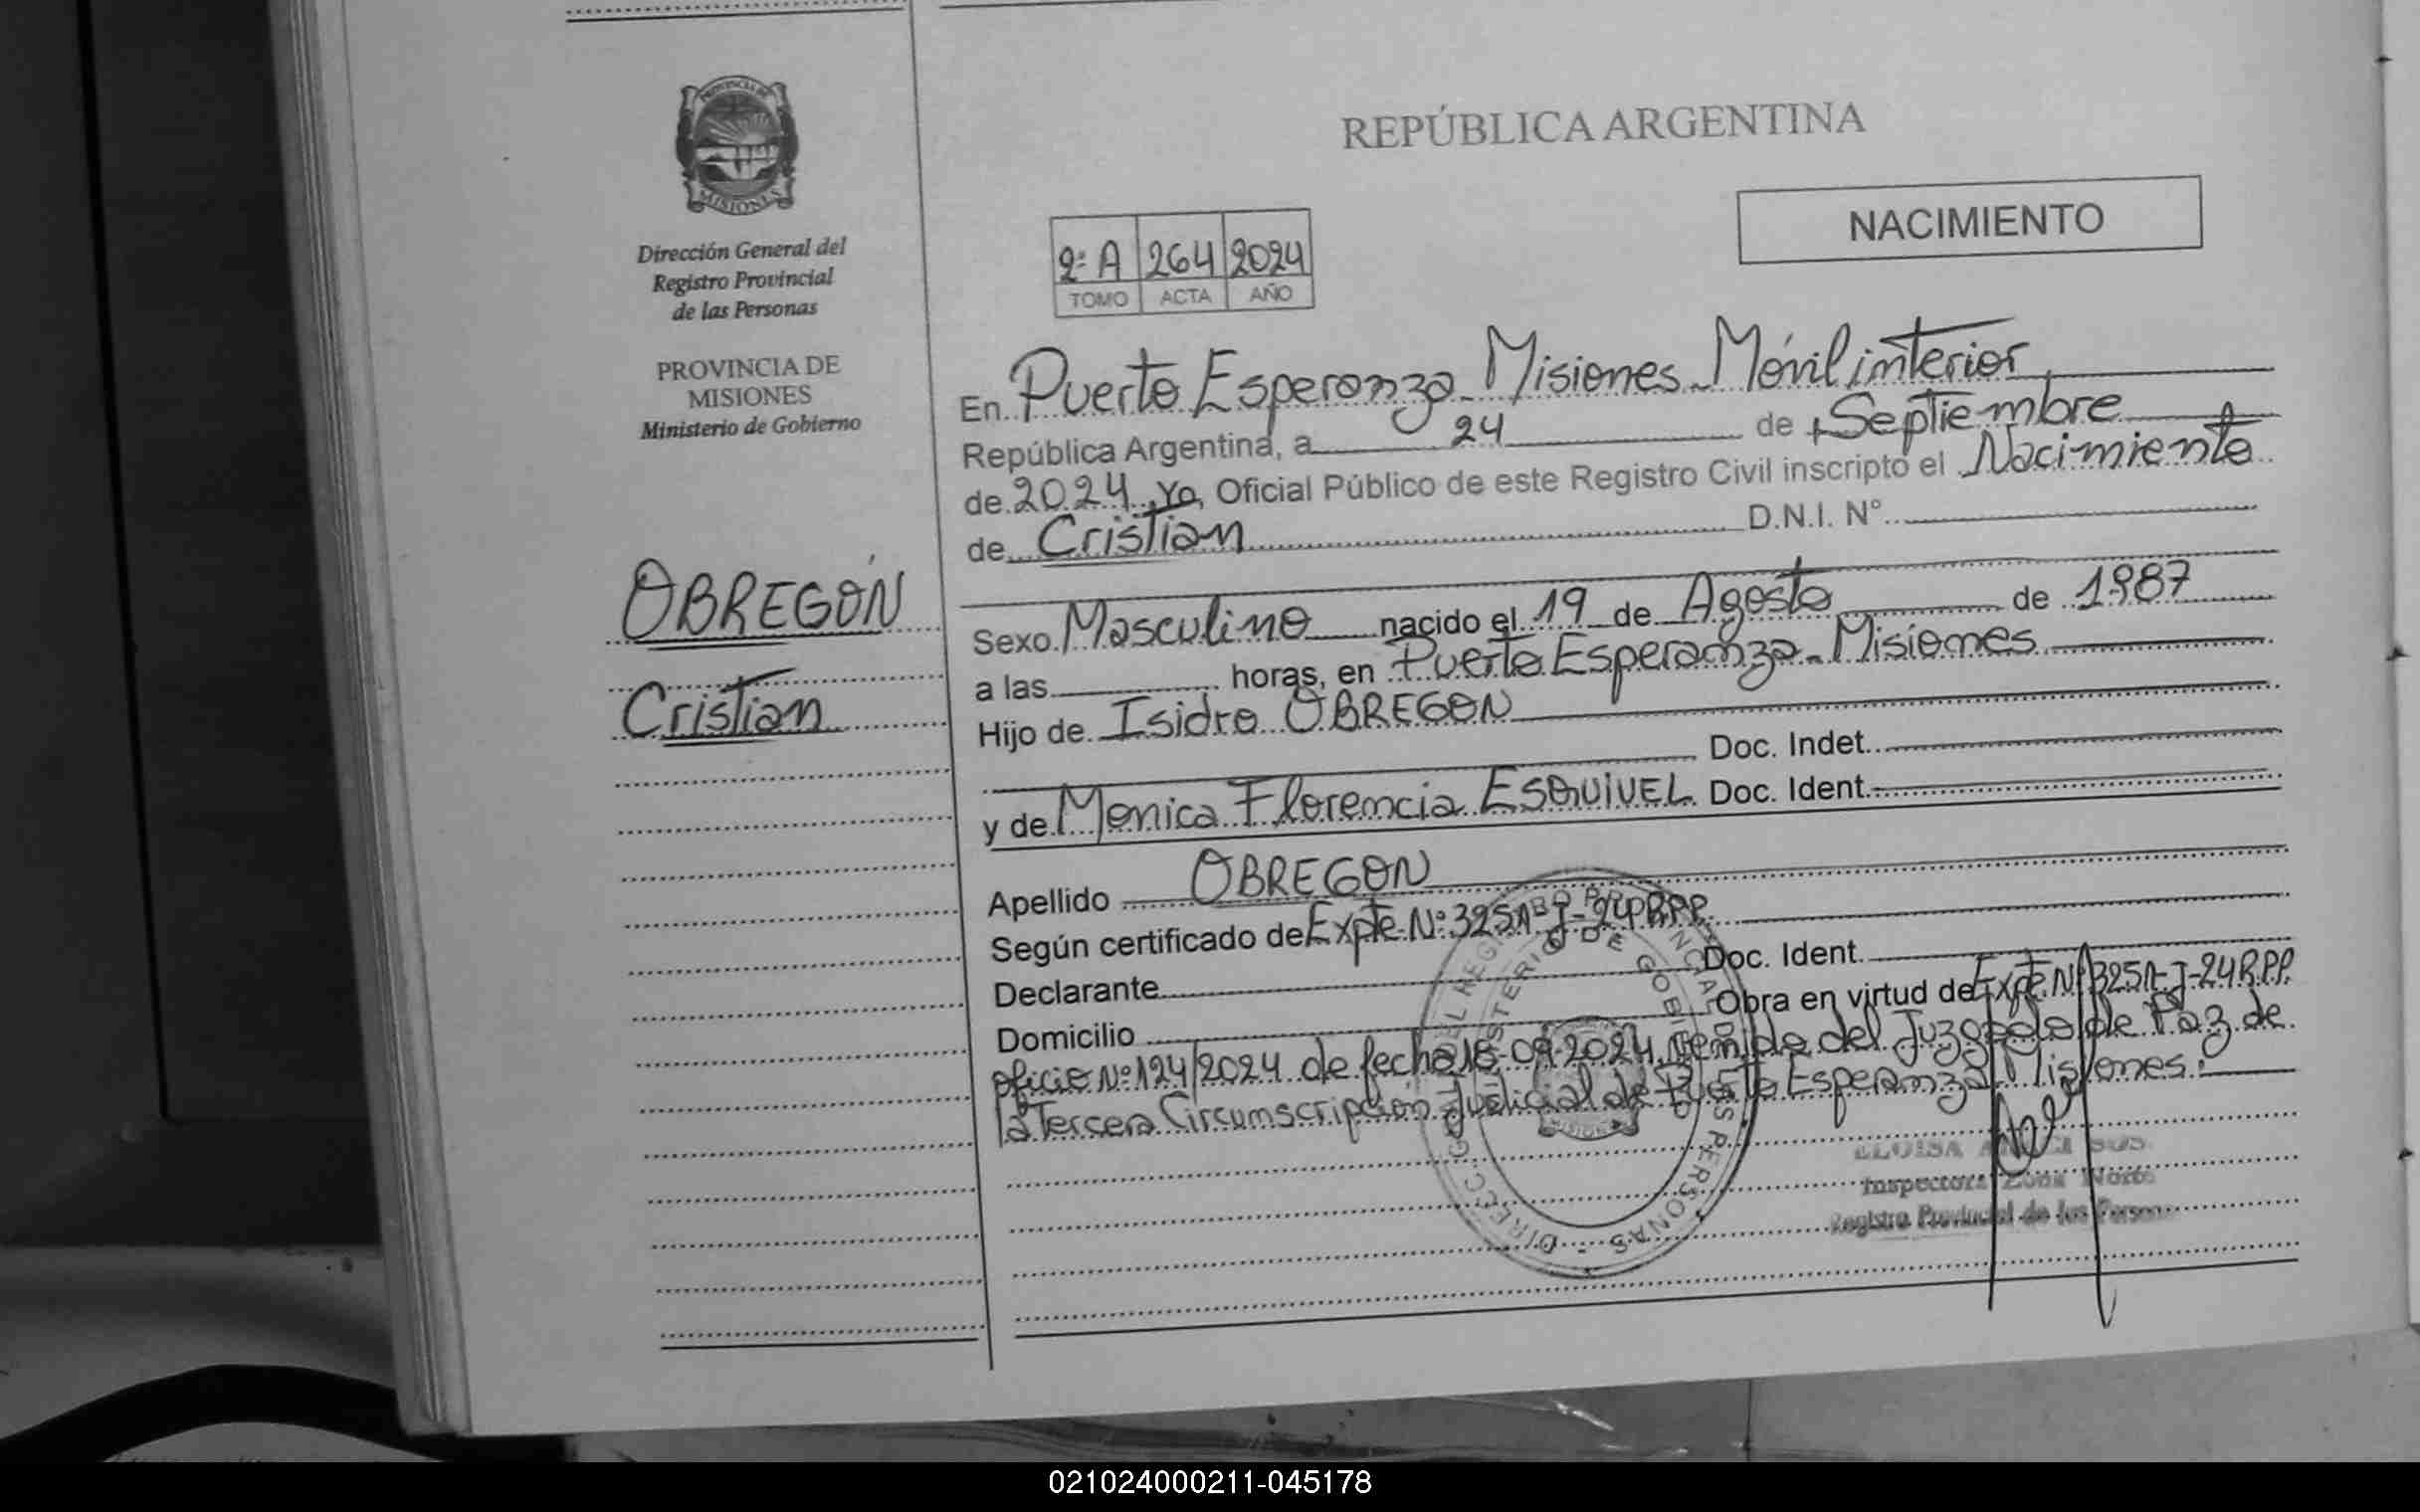 PROVINCIA DE
MISIONES
Dirección General del
Registro Provincial
de las Personas
PROVINCIA DE
MISIONES
Ministerio de Gobierno
OBREGÓN
Cristian
REPÚBLICA ARGENTINA
NACIMIENTO
2º A 264 2024
TOMO ACTA AÑO
En Puerto Esperanza - Misiones - Móvil interior
República Argentina, a 24 de Septiembre
de 2024 Yo, Oficial Público de este Registro Civil inscripto el Nacimiento
de Cristian D.N.I. N°
Sexo Masculino nacido el 19 de Agosto de 1987
a las horas, en Puerto Esperanza - Misiones
Hijo de Isidro OBREGON
Doc. Indet.
y de Monica Florencia ESQUIVEL Doc. Ident.
Apellido OBREGON
Según certificado de Expte Nº 3251-J-24 R.P.P.
Declarante Doc. Ident.
Domicilio Obra en virtud de Expte Nº 3251-J-24 R.P.P.
oficio Nº 124/2024 de fecha 18-09-2024, del Juzgado de Paz de
la Tercera Circumscripción Judicial de Puerto Esperanza Misiones.
ELOISA
Inspectora Zona Norte
Registro Provincial de las Personas
DIRECC. GRAL. DEL REGISTRO PROVINCIAL DE LAS PERSONAS
MINISTERIO DE GOBIERNO
MISIONES
021024000211-045178